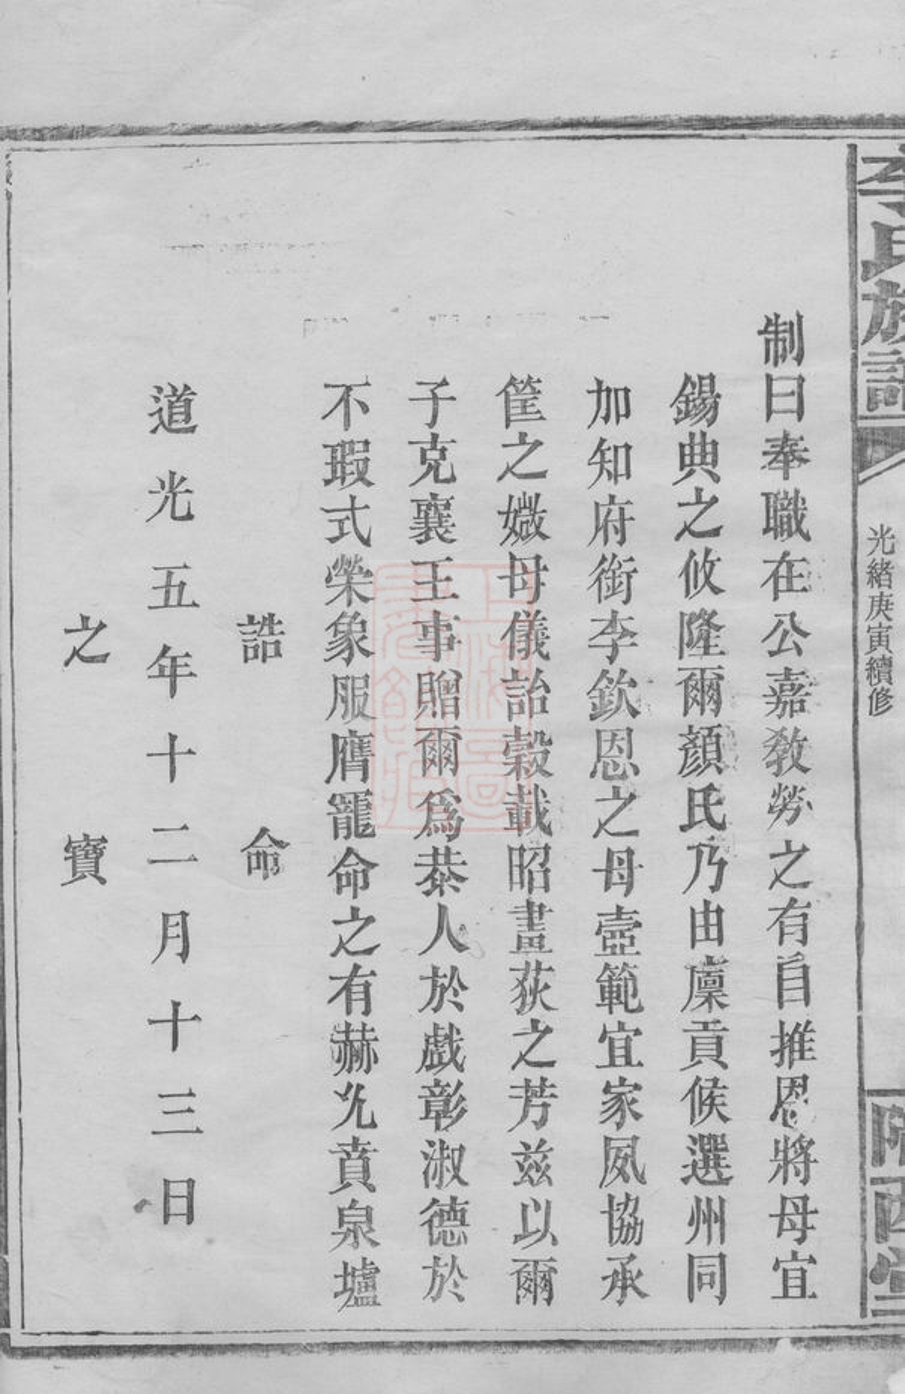 李氏族譜
光緒庚寅續修
隴西堂
制曰奉職在公嘉教勞之有自推恩將母宜
錫典之攸隆爾顏氏乃由廩貢候選州同
加知府銜李欽恩之母壼範宜家夙協承
筐之媺母儀詒穀載昭畫荻之芳茲以爾
子克襄王事贈爾爲恭人於戲彰淑德於
不瑕式榮象服膺寵命之有赫允賁泉壚
誥命
道光五年十二月十三日
之寶